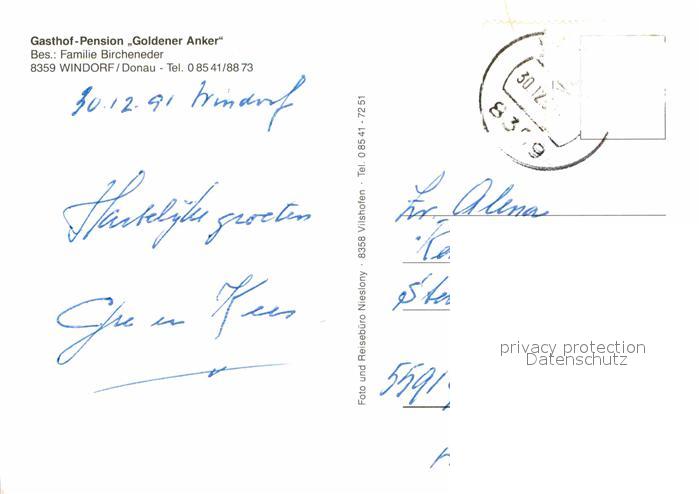 Gasthof-Pension „Goldener Anker“
Bes.: Familie Bircheneder
8359 WINDORF/Donau - Tel. 0 85 41/88 73
30.12.91 Windorf
Hartelijke groeten
Gre en Kees
Foto und Reisebüro Nieslony · 8358 Vilshofen · Tel. 0 85 41 - 72 51
30.12.
Zr. Alena
5591
privacy protection
Datenschutz